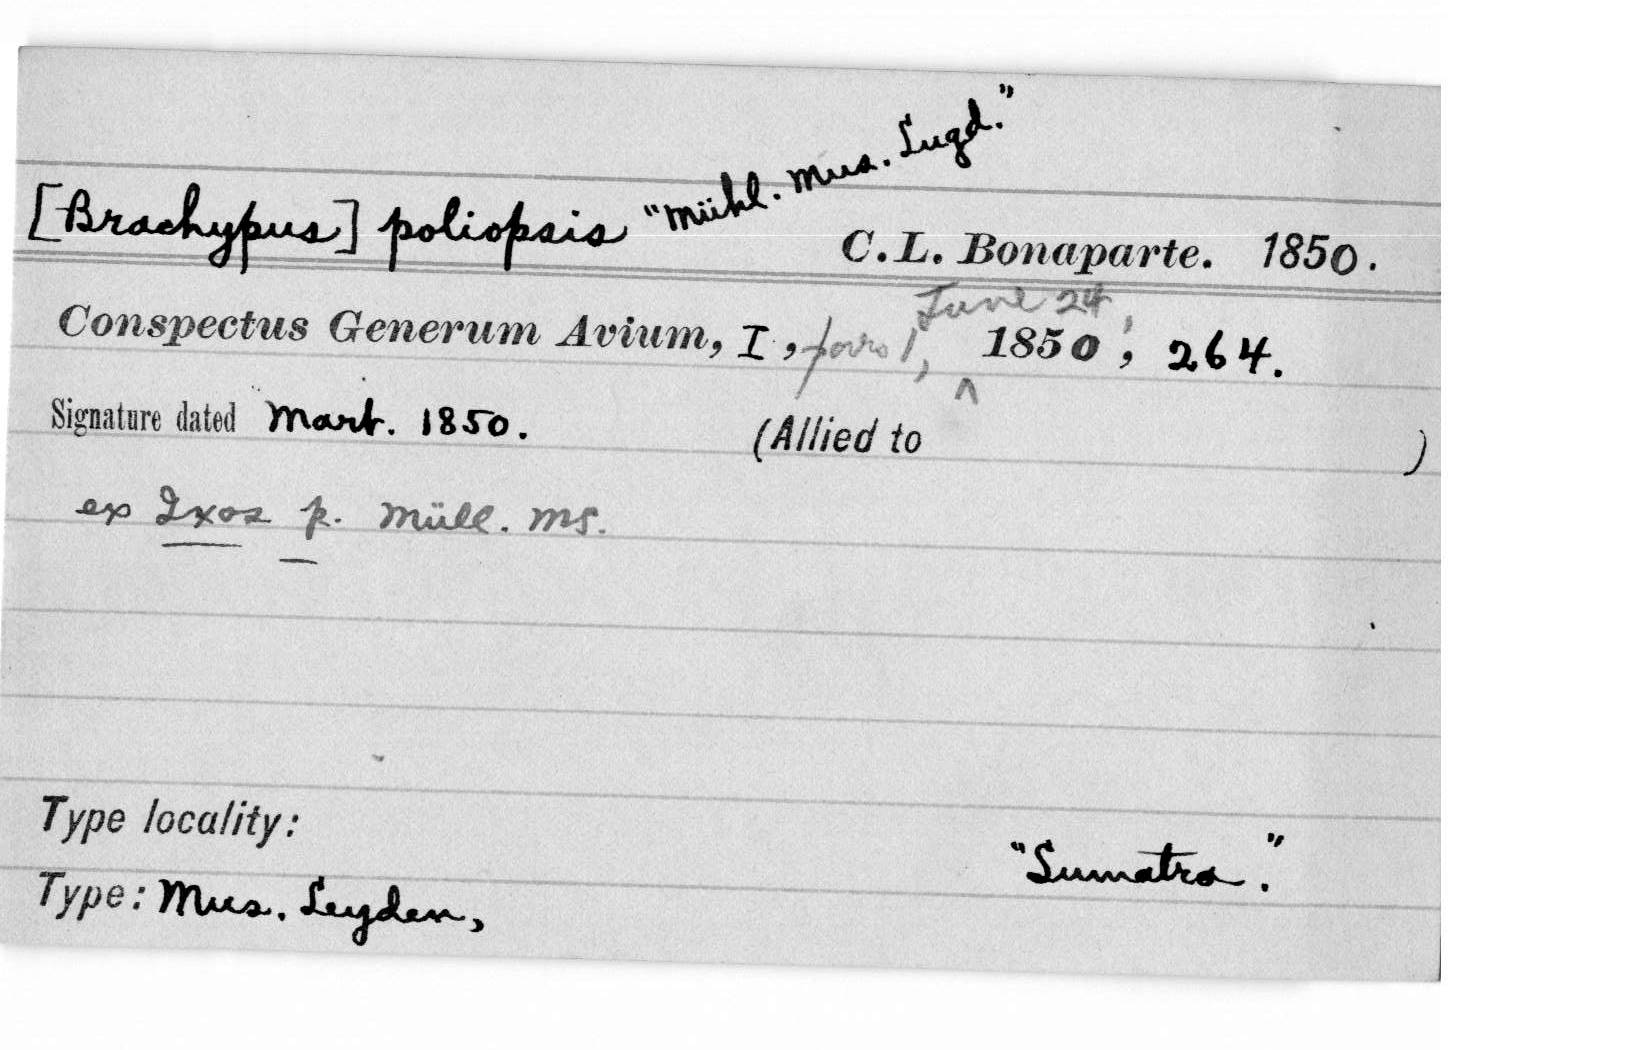 [Brachypus] poliopsis "Mühl. Mus. Lugd."
C.L. Bonaparte. 1850.
Conspectus Generum Avium, I, pars 1, June 24, 1850, 264.
Signature dated Mart. 1850. (Allied to )
ex Ixos p. Müll. MS.
Type locality:
"Sumatra."
Type: Mus. Leyden,